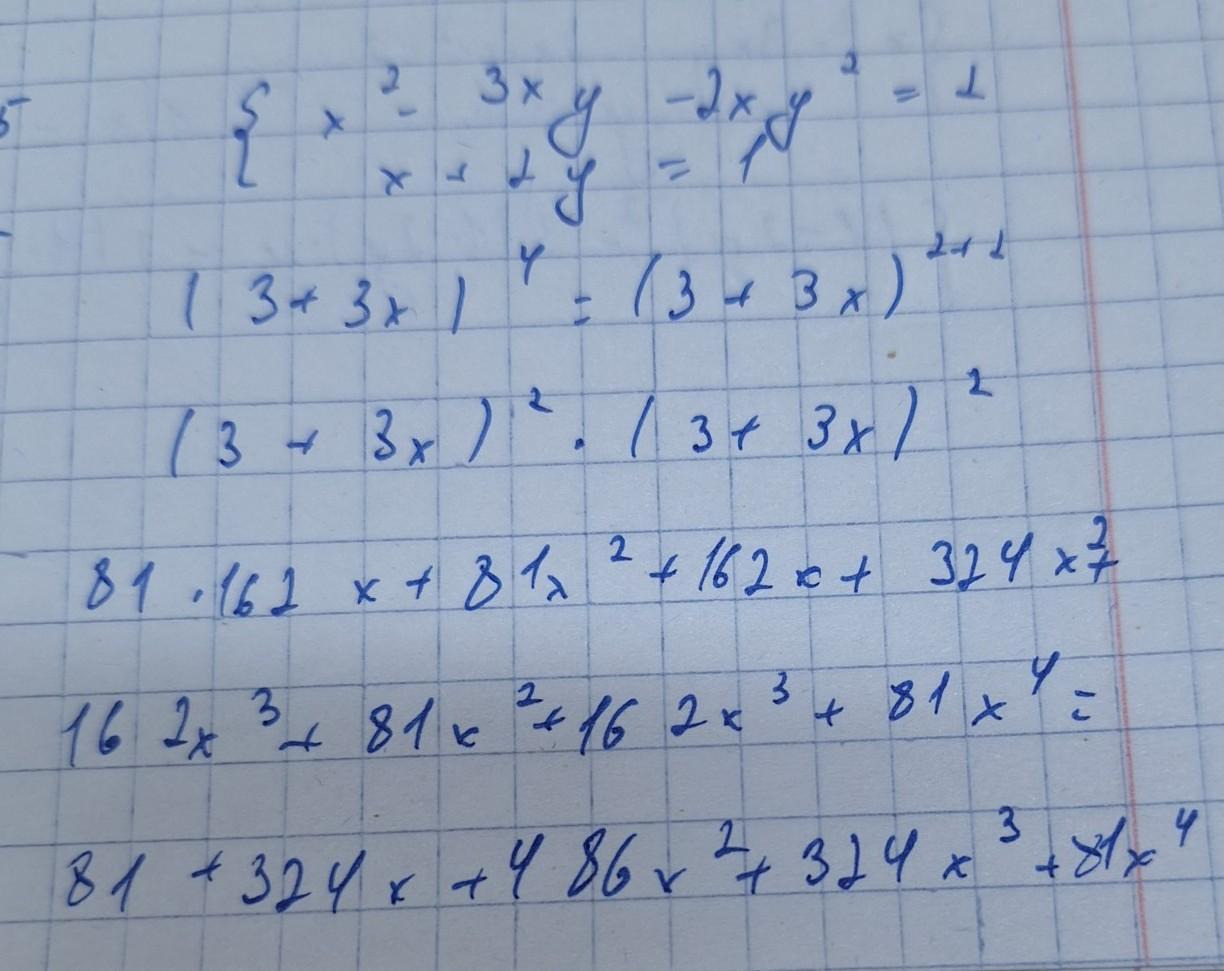 5
{ x² - 3xy - 2xy² = 2
x + 2y = 1
(3 + 3x)⁴ = (3 + 3x)²⁺²
(3 + 3x)² · (3 + 3x)²
81 · 162x + 81x² + 162x + 324x² +
162x³ + 81x² + 162x³ + 81x⁴ =
81 + 324x + 486x² + 324x³ + 81x⁴